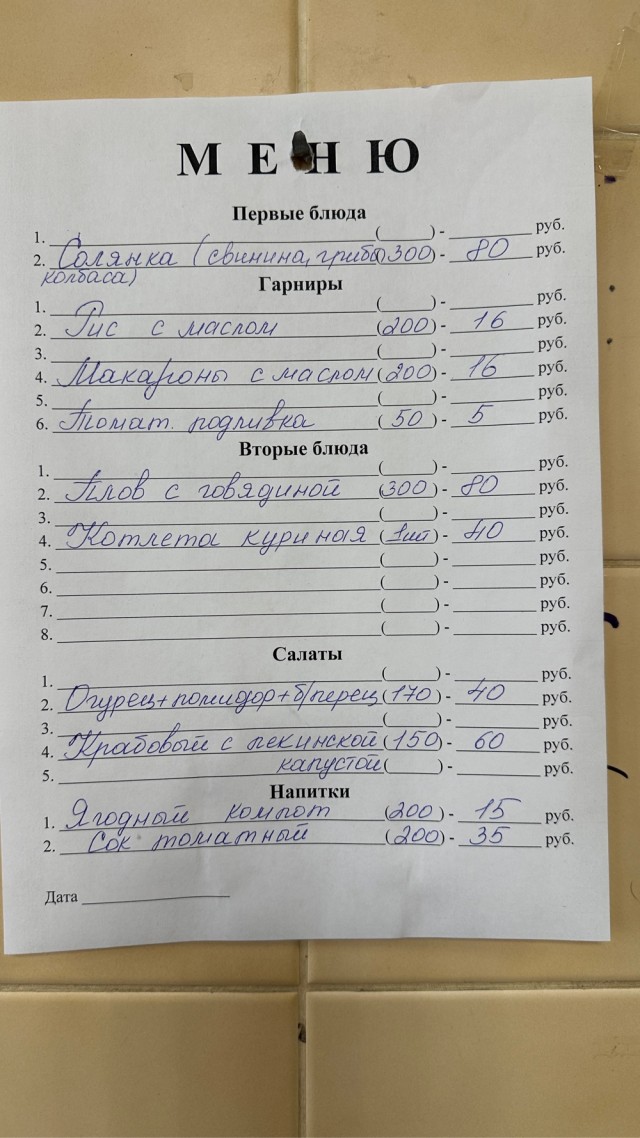 МЕНЮ
Первые блюда
1. (      ) - руб.
2. Солянка (свинина, грибы 300) - 80 руб.
колбаса)
Гарниры
1. (      ) - руб.
2. Рис с маслом (200) - 16 руб.
3. (      ) - руб.
4. Макароны с маслом (200) - 16 руб.
5. (      ) - руб.
6. Томат. подливка (50) - 5 руб.
Вторые блюда
1. (      ) - руб.
2. Плов с говядиной (300) - 80 руб.
3. (      ) - руб.
4. Котлета куриная (1шт) - 40 руб.
5. (      ) - руб.
6. (      ) - руб.
7. (      ) - руб.
8. (      ) - руб.
Салаты
1. (      ) - руб.
2. Огурец+помидор+б/перец (170) - 40 руб.
3. (      ) - руб.
4. Крабовый с пекинской (150) - 60 руб.
5. капустой (      ) - руб.
Напитки
1. Ягодный компот (200) - 15 руб.
2. Сок томатный (200) - 35 руб.
Дата